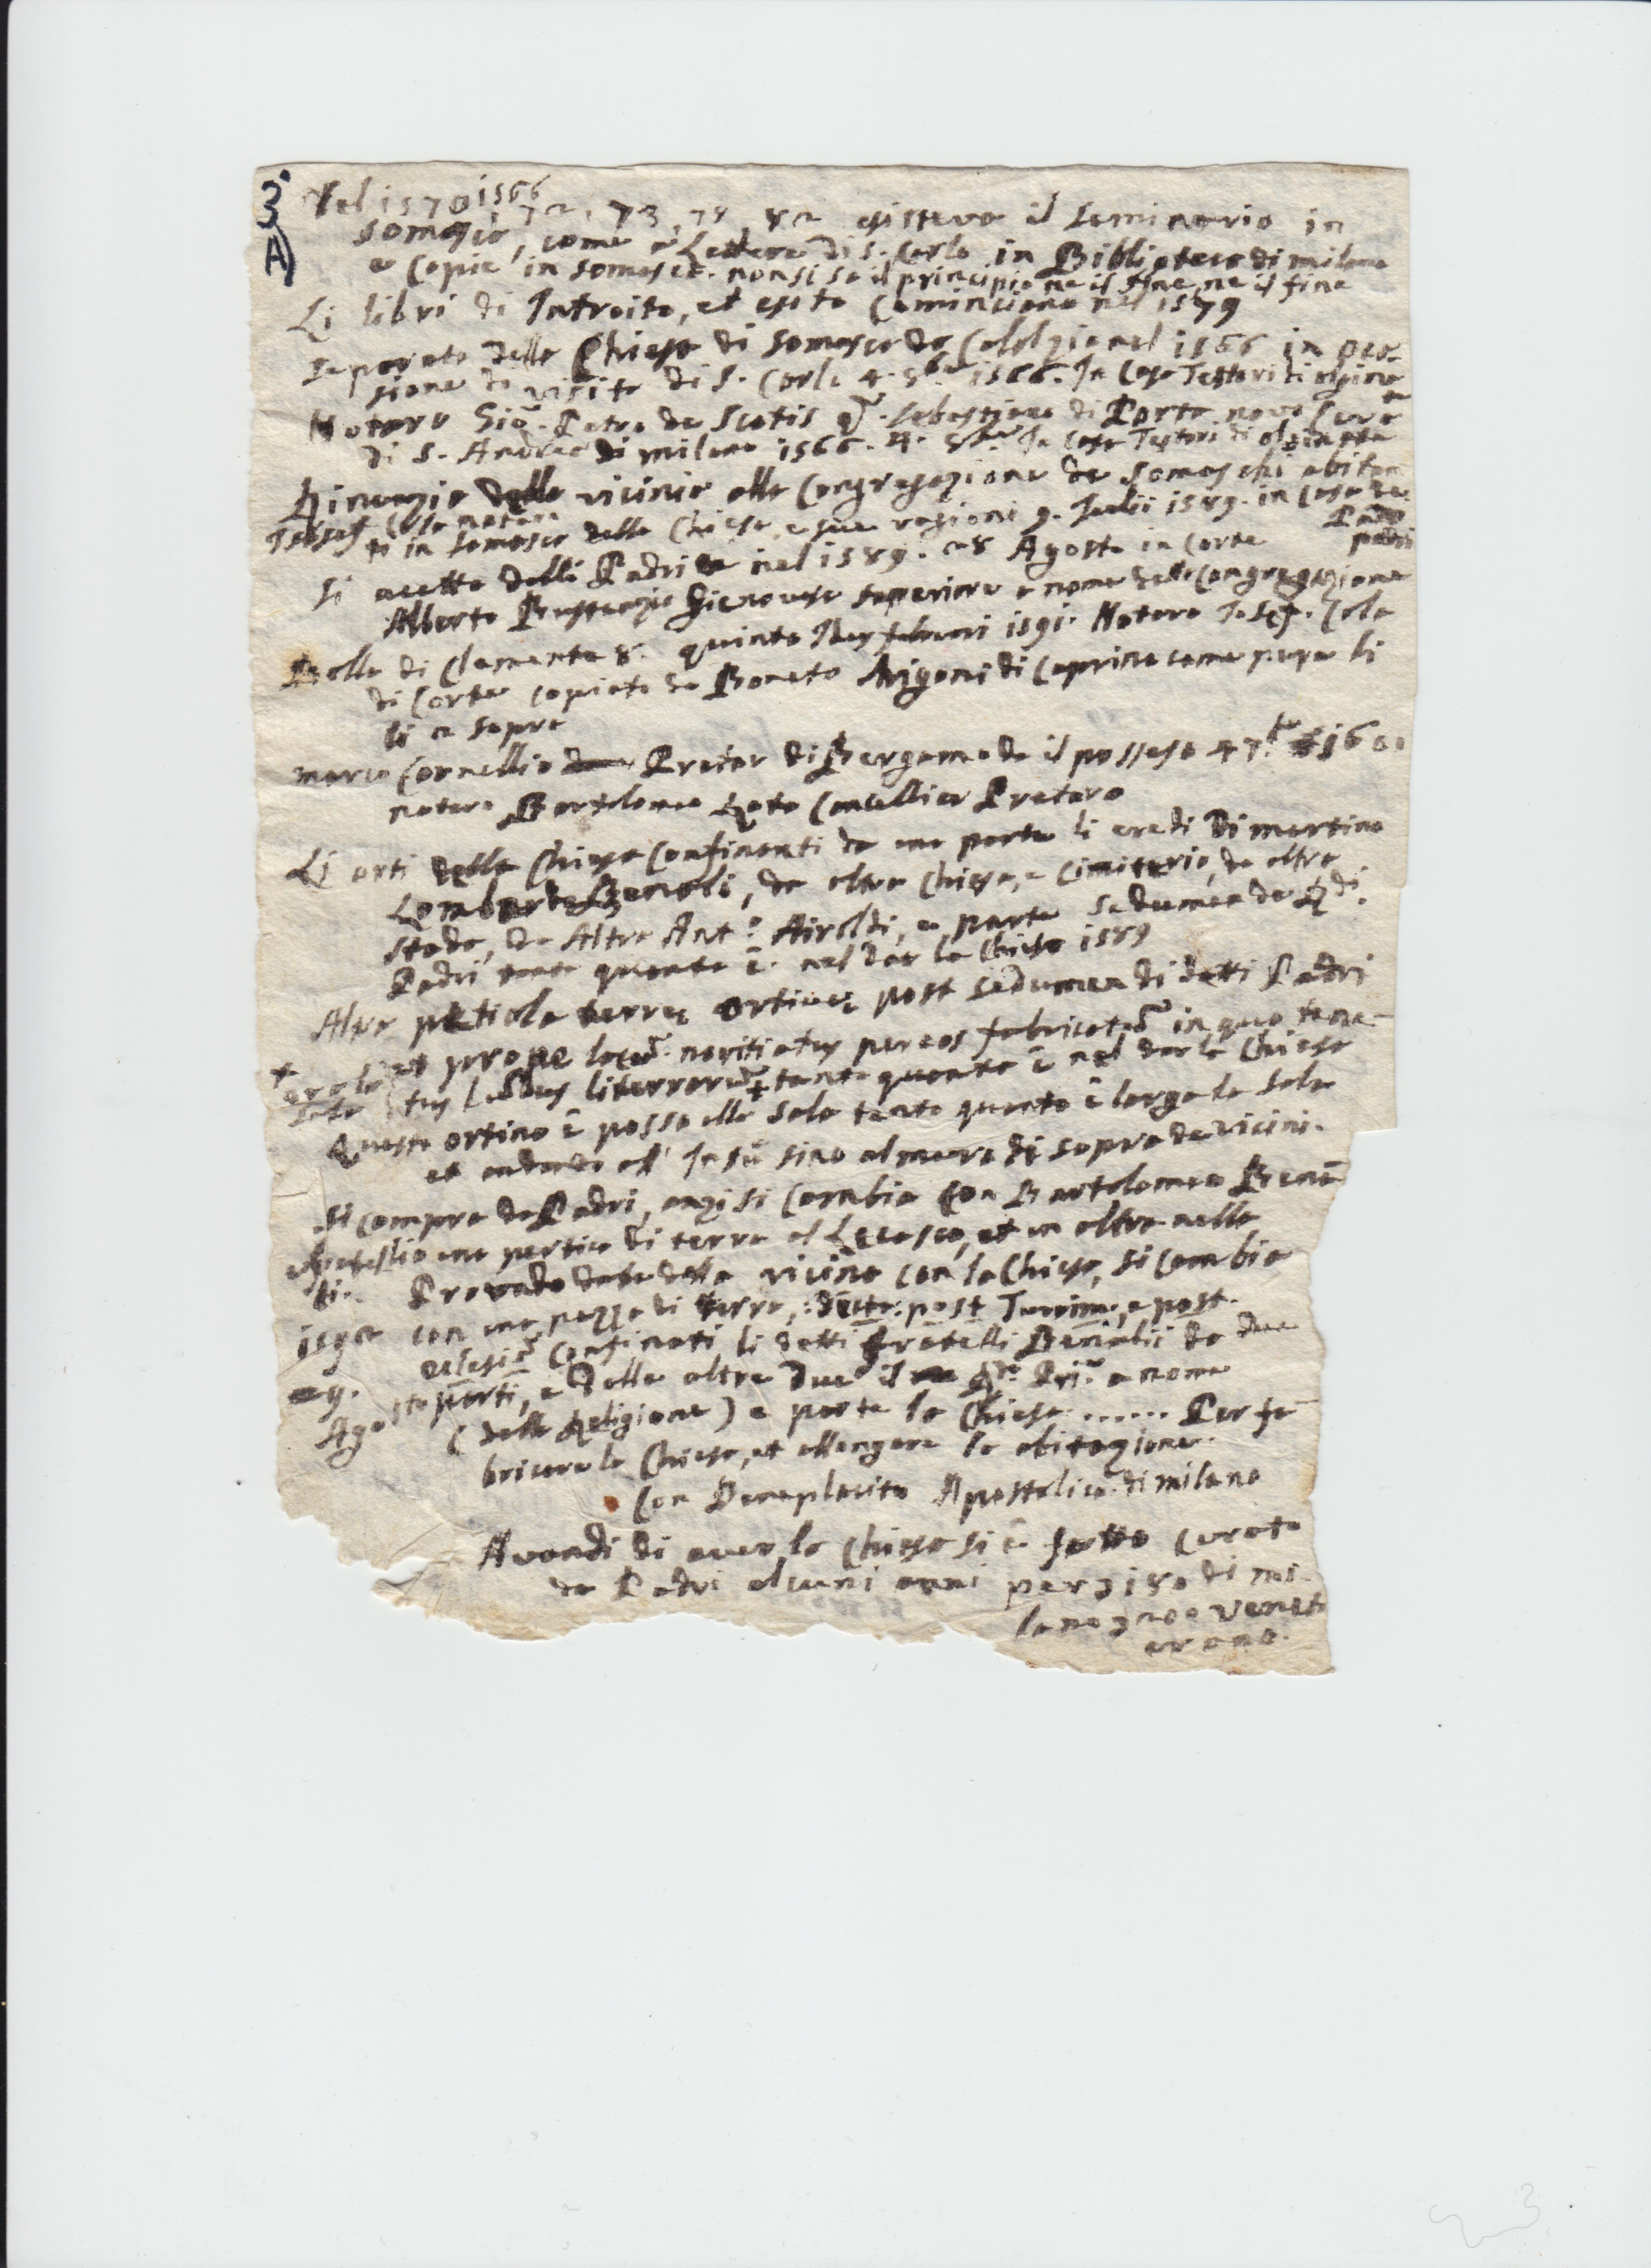 3.
A)
Nel 1570 1566
72, 73, 74, 82 esisteva il seminario in
Somasca, come a Lettere di S. Carlo in Biblioteca di milano
e copie in somasca. non si sa il principio ne il fine
Li libri di Introito, et esito Cominciano nel 1579
Separata della Chiesa di Somasca da Calolzio nel 1566 in oca-
sione di visita di S. Carlo 4. 8bre 1566. In Casa Testori di olginate
Notaro Gio. Petro de Scotis qm. Sebastiano di Porta nova Cura
di S. Andrea di milano 1566. 4. 8bre In casa Testori di olginate
Rinonzia della vicinia alla Congregazione de Somaschi abitan
Josef Cola notaro
ti in Somasca della Chiesa, e sue ragioni 9. Julii 1589. in Casa de
Padri
Si acetta dalli Padri nel 1589. 28 Agosto in Corte
Alberto Bustanzio Gienovese superiore a nome della Congregazione
Bolla di Clemente 8. quinto Idus februari 1591. Notaro Josef. Cola
di Corte copiata da Boneto Arigoni di Caprino come pure li
li 2 sopra
marco Cornellio Pretor di Bergamo da il possesso 1600
notaro Bartolomeo Cancellier Pretoro
Li orti della Chiesa Confinanti da una parte li eredi di martino
Lombardo Benali, da altra Chiesa, e Cimiterio, da altra
strada, da Altra Ant.o Airoldi, e parte sedumen de Rdi.
Padri tanto quanto è. nel dar la Chiesa 1589
Altra petiola terre ortive post sedumen di detti Padri
et prope locum novitiatus per eos fabricatum in quo tene-
tur Ludus literrorum + tanto quanto è nel dar la Chiesa
+
Questo ortino è posso alla sala tanto quanto è larga la sala
et andando al' In sù sino al muro di sopra de vicini.
Si compra da Padri, anzi si Cambia con Bartolomeo Bena
e fratello una pertica di terra al Lecasco, et un altra nella
li. Pravada vicino con la Chiesa, si cambia
con una pezza di terra, detta: post Turrim, e post.
eclesiam Confinati li detti fratelli Benalii da due
parti, e dalle altre due il Rdo. Pri. a nome
9.
Agosto
(della Religione) e parte la Chiesa ...... Per fa-
bricare la Chiesa, et allongare la abitazione.
Con Beneplacito Apostolico di milano
Avandi di aver la Chiesa si è fatto curato
da Padri alcuni anni di mi-
lano veneti
erano.